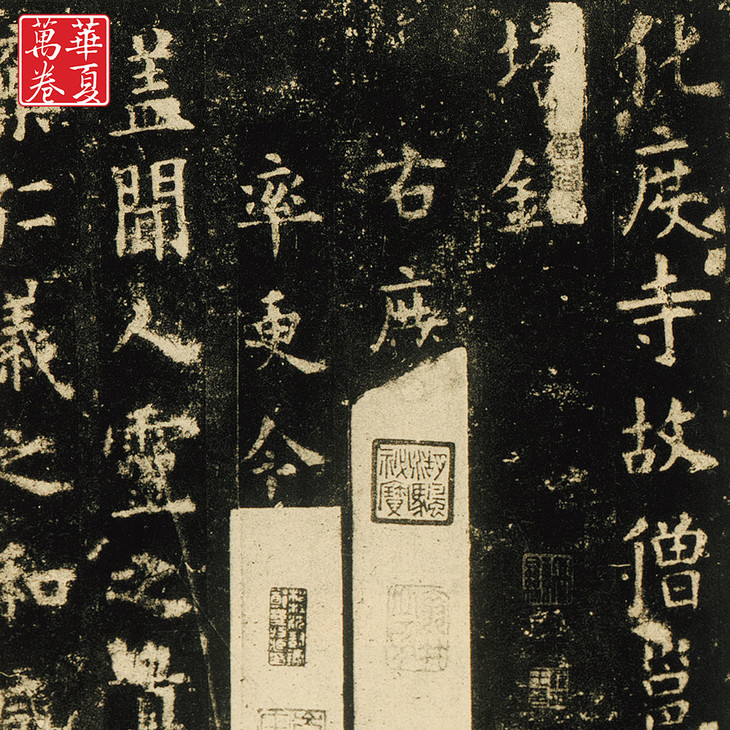 華夏
萬卷
化度寺故僧邕
塔銘
右庶
率更令
盖聞人靈之貴
仁義之和